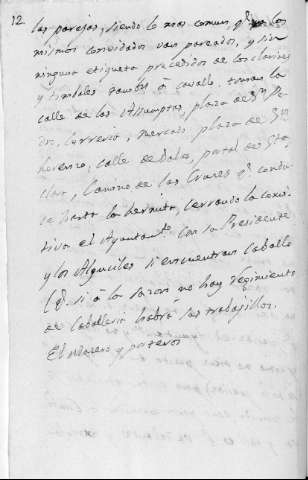 12
las parejas, siendo lo mas comun, qe los
mismos convidados van pareados, y sin
ninguna etiqueta precedidos de los clarines
y timbales tambn à cavallo, toman la
calle de los Assumptos, plaza de Sn Pe-
dro, Correria, Mercado plaza de Sn
Lorenzo, calle de Salas, portal de Sta
Clara, Camino de las Cruces qe condu-
ce hasta la hermita, cerrando la comi-
tiva el Ayuntamto con su Presidente
y los Alguaciles si encuentran Caballo
(qe si à la sazon no hay regimiento
de Caballeria habrá sus trabajillos.
El Macero y porteros